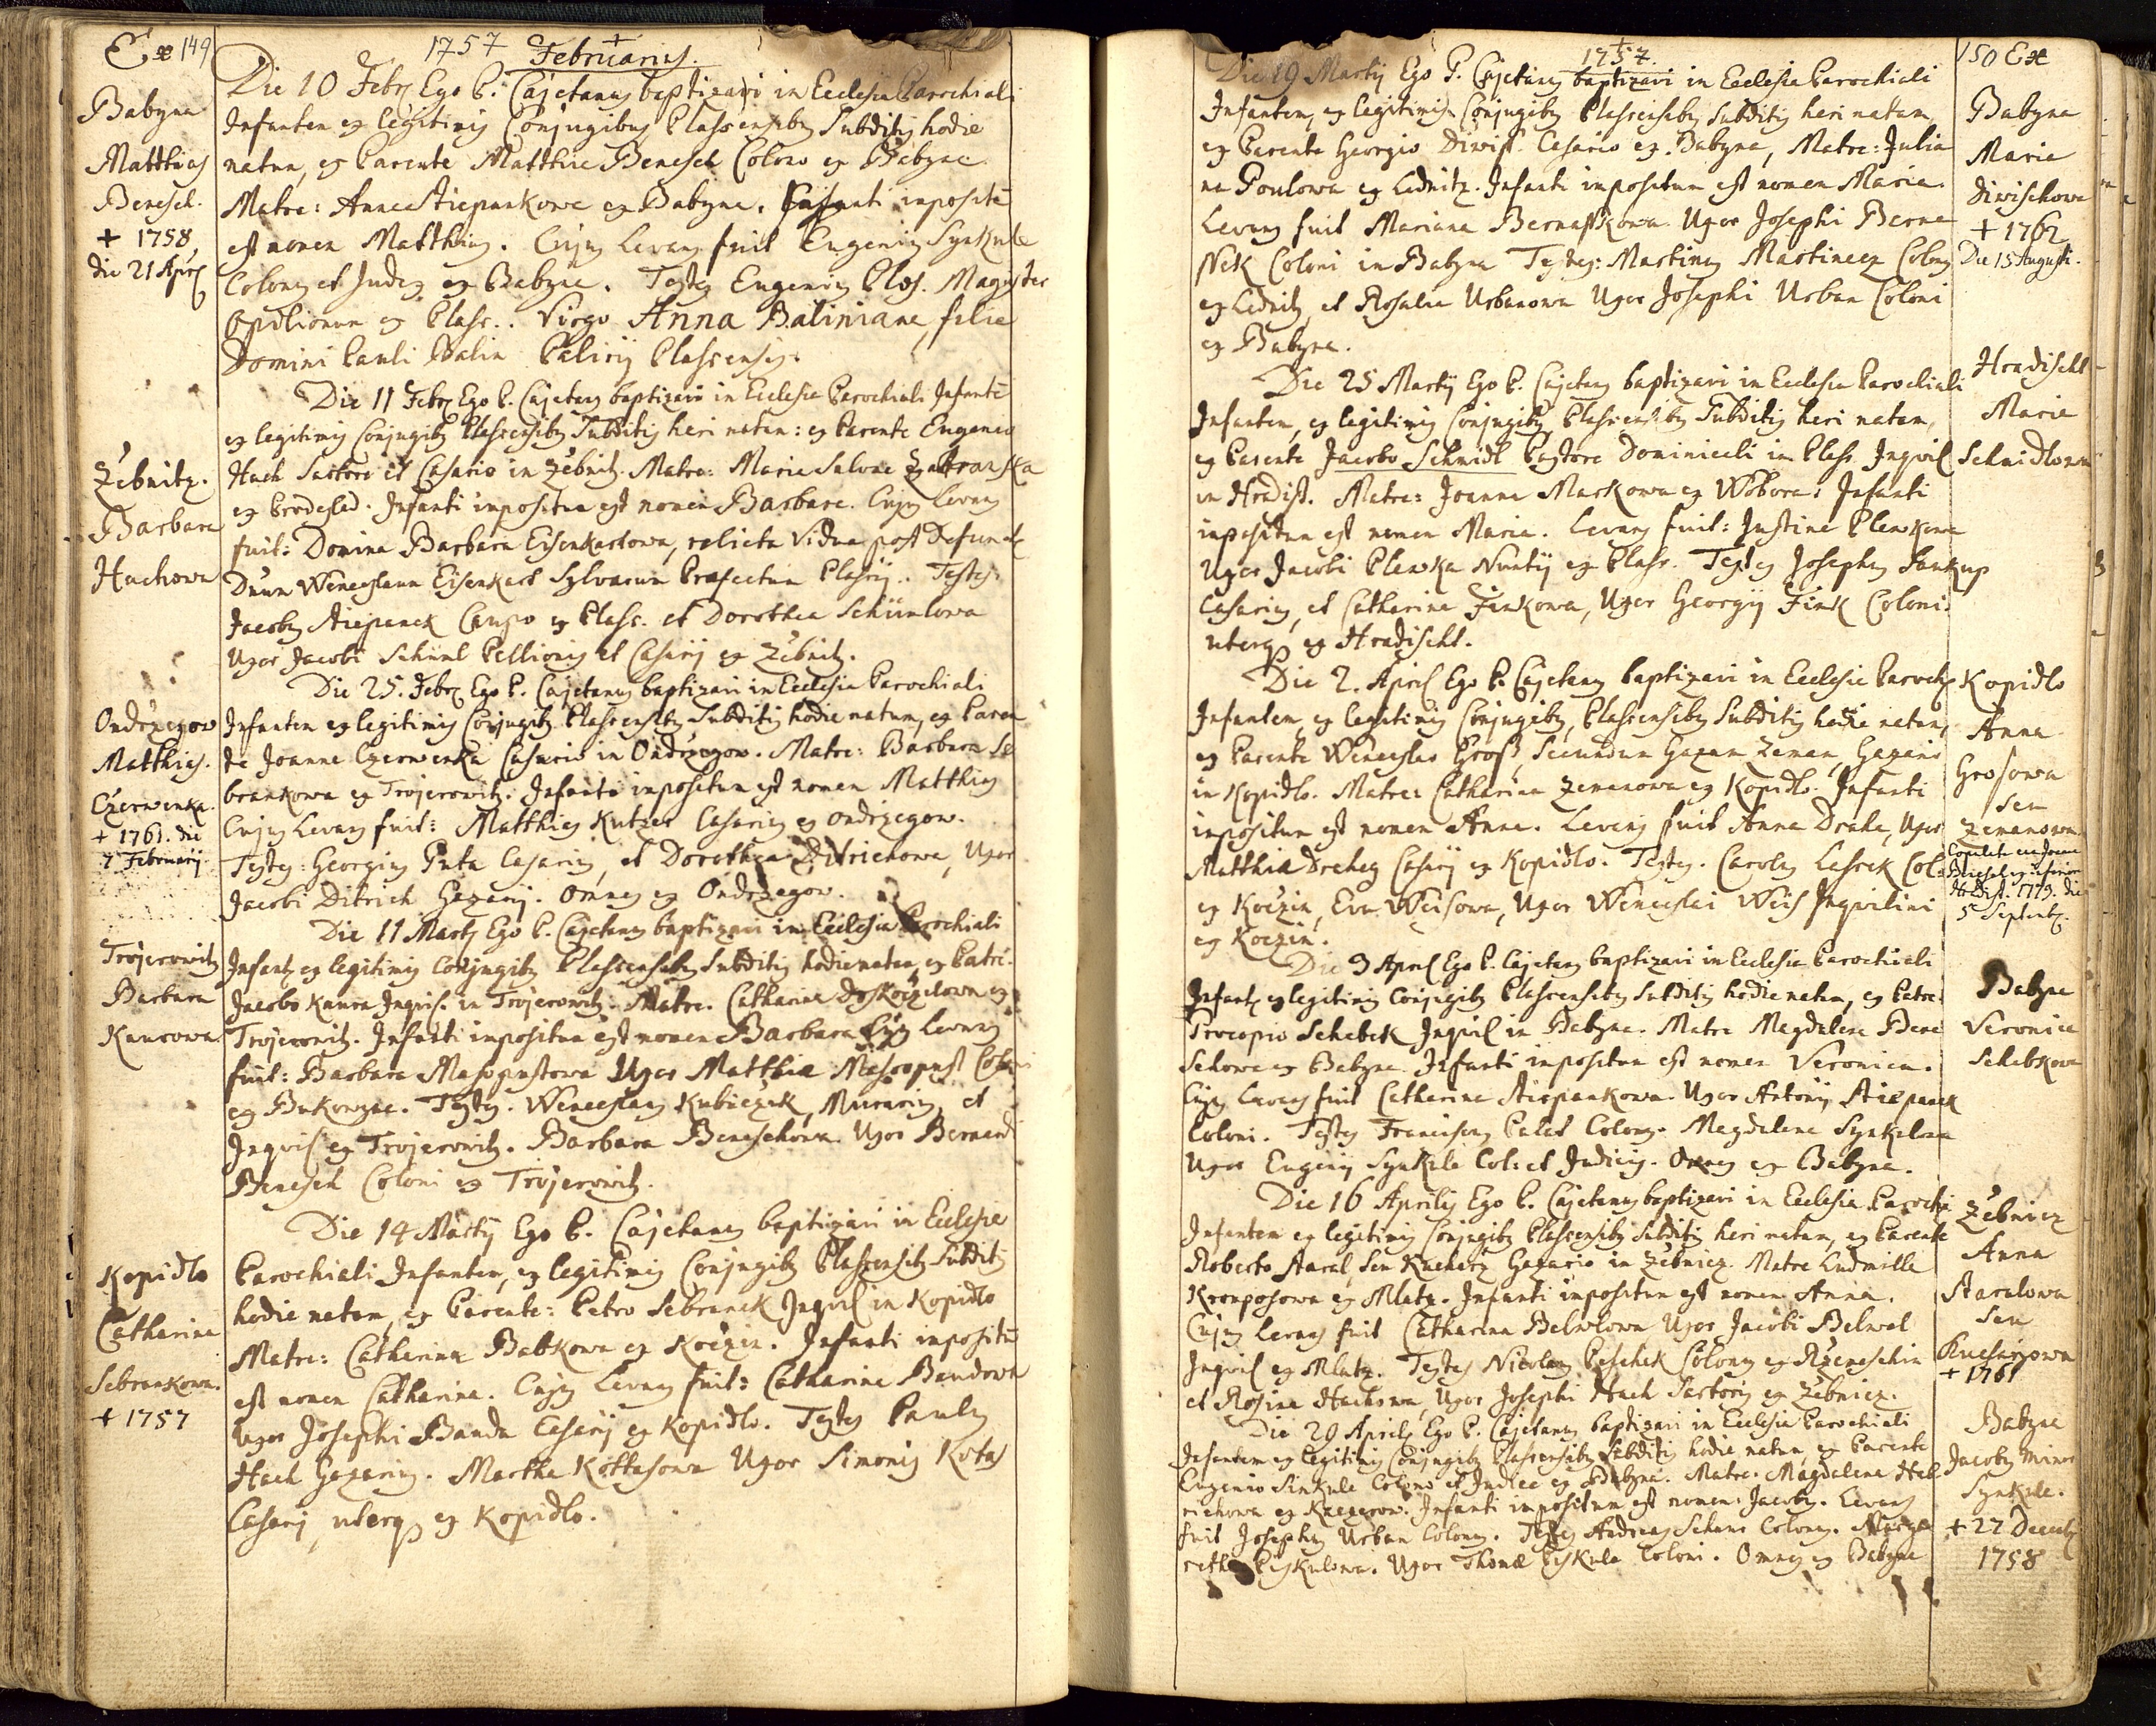 149
1757 Februarius.
Babyna
Matthias
Benesch.
+ 1758,
die 21 Apr
Die 10 Febr Ego P. Cajetanus baptizavi in Ecclesia Parochiali
Infantem ex legitimis Conjugibus Plassensibus Subditis hodie
natum, ex Parente Matthia Benesch Colono ex Babyna
Matre: Anna Stiepankowa ex Babyna. Infanti impositũ
est nomen Matthias. Cujus Levans fuit Eugenius Synkule
Colonus et Judex ex Babyna. Testes Eugenius Magister
Opilionum ex Plass.. Virgo Anna Baliniana, filia
Domini Pauli Balin Plassensis.
Zebnitz.
Barbara
Hachowa
Die 11 Febr Ego P. Cajetanus baptizavi in Ecclesia Parochiali Infantẽ
ex legitimis Conjugibus Plassensibus Subditis heri natam: ex Parente Eugenio
Hach Sartore et Casario in Zebnitz. Matre: Maria Salome Zabranska
ex Infanti impositum est nomen Barbara. Cujus Levans
fuit: Domina Barbara Eisenkartowa, relicta Vidua post Defunct
Dnum Wenceslaum Eisenkart Sylvarum Praefectum Plassij.. Testes:
Jacobus Stiepanek Caupo ex Plass. et Dorothea Schimlowa
Uxor Jacobi Schiml Pellionis et Casarij ex Zebnitz.
Ondrzegow
Matthias.
Czerwenka.
+ 1761. die
7 Februarij
Die 25. Febr Ego P. Cajetanus baptizavi in Ecclesia Parochiali
Infantem ex legitimis Conjugibus Plassensibus Subditis hodie natum, ex Paren
te Joanne Czerwenka Casario in Ondrzegow. Matre: Barbara Se
brankowa ex Trojerowitz. Infanti impositum est nomen Matthias
Cujus Levans fuit: Matthias Kutzer Casarius ex Ondrzegow.
Testes: Georgius Puta Casarius, et Dorothea Ditrichowa, Uxor
Jacobi Ditrich Gazarij. Omnes ex Ondrzegow.
Trojerowitz
Barbara
Kaurowa
Die 11 Martij Ego P. Cajetanus baptizavi in Ecclesia Parochiali
Infant ex legitimis Conjugibus Plassensibus Subditis hodie natam, ex Patre.
Jacobo Kaura Inquil. in Trojerowitz. Matre. Catharina ex
Trojerowitz. Infanti impositum est nomen Barbara Cujus Levans
fuit: Barbara Masopustowa Uxor Matthia Masopust
ex Testes. Wenceslaus Kubiczek, Murarius, et
Inquil ex Trojerowitz. Barbara Beneschowa. Uxor Bernardi
Benesch Coloni ex Trojerowitz.
Kopidlo
Catharina
Sebrankowa.
+ 1757
Die 14 Martij Ego P. Cajetanus baptizavi in Ecclesia
Parochiali Infantem, ex legitimis Conjugibus Plassensibus Subditis
hodie natam, ex Parente: Petro Sebranek Inquil in Kopidlo
Matre: Catharina Babkowa ex Koczin. Infanti impositũ
est nomen Catharina. Cujus Levans fuit: Catharina Bandowa
Uxor Josephi Banda Casarij ex Kopidlo. Testes Paulus
Hach Gazarius. Martha Kottasowa Uxor Simonis Kotas
Casarij, uterq ex Kopidlo.
150
1757.
Babyna
Maria
Diwischowa
+ 1762
Die 15 Augusti.
Die 19 Martij Ego P. Cajetanus baptizavi in Ecclesia Parochiali
Infantem, ex legitimis Conjugibus Plassensibus Subditis heri natam,
ex Parente Georgio Diwiss. Casario ex Babyna, Matre: Julia
na Poulowa ex Lednitz. Infanti impositum est nomen Maria.
Levans fuit Mariana Bernasskowa Uxor Josephi Berna
Coloni in Babyna Testes: Martinus Martinecz Colonus
ex Lednitz, et Rosalia Urbanowa Uxor Josephi Urban Coloni
ex Babyna.
Hradischt
Maria
Schmidlowa
Die 25 Martij Ego P. Cajetanus baptizavi in Ecclesia Parochiali
Infantem, ex legitimis Conjugibus Plassensibus Subditis heri natam,
ex Parente Jacobo Schmidl Pastore Dominicali in Plass Inquil
in Hradisst. Matre: Joanna Markowa ex Wobora: Infanti
impositum est nomen Maria. Levans fuit: Justina Plewkowa
Uxor Jacobi Plewka Nuntij ex Plass. Testes Josephus
Casarius, et Catharina Finkowa, Uxor Georgij Fink Coloni.
uterq ex Hradischt.
Kopidlo
Anna
Grosowa
seu
Zemanowa
Copulata cum Joane
1779. die
5 Septemb.
Die 2. April Ego P. Cajetanus baptizavi in Ecclesia Paroch
Infantem, ex legitimis Conjugibus, Plassensibus Subditis hodie natam,
ex Parente Wenceslao Gross, secundum Gazam Zeman, Gazario
in Kopidlo. Matre: Catharina Zemanowa ex Kopidlo. Infanti
impositum est nomen Anna. Levans fuit Anna Uxor
Matthia Casarij ex Kopidlo. Testes. Carolus Col:
ex Koczin, Eva Weisowa, Uxor Wenceslai Weis Inquilini
ex Koczin.
Babyna
Veronica
Schebkowa
Die 3 April Ego P. Cajetanus baptizavi in Ecclesia Parochiali
Infant ex legitimis Conjugibus Plassensibus Subditis hodie natam, ex Patre:
Procopio Schebek Inquil in Babyna. Matre Magdalena Bene
schowa ex Babyna Infanti impositum est nomen Veronica.
Cujus Levans fuit Catharina Stiepankowa. Uxor Antonij Stiepanek
Coloni. Testes Franciscus Colonus. Magdalena Synkulowa
Uxor Eugenij Synkule Col: et Judicis. Omnes ex Babyna.
Zebnicz
Anna
Aaralowa
Seu
+ 1761
Die 16 Aprilis Ego P. Cajetanus baptizavi in Ecclesia Parochi
Infantem ex legitimis Conjugibus Plassensibus Subditis heri natam, ex Parente
Roberto seu Gazario in Zebnicz. Matre Ludmilla
ex Mlatz. Infanti impositum est nomen Anna.
Cujus Levans fuit Catharina Belwlowa Uxor Jacobi Belwel
Inquil ex Mlatz. Testes Nicolaus Peschek Colonus ex
et Rosina Hachowa, Uxor Josephi Hach Sartoris ex Zebnicz.
Babyna
Jacobus Minor
Synkule.
+ 27 Decemb
1758
Die 29 Aprilis Ego P. Cajetanus baptizavi in Ecclesia Parochiali
Infantem ex legitimis Conjugibus Plassensibus Subditis hodie natum, ex Parente
Eugenio Sinkule Colono et Judice ex Babyna. Matre. Magdalena
ex Infanti impositum est nomen: Jacobus. Levans
fuit Josephus Urban Colonus. Testes Andreas Colonus. Marga
retha Piskulowa. Uxor Thomæ Piskula Coloni. Omnes ex Babyna